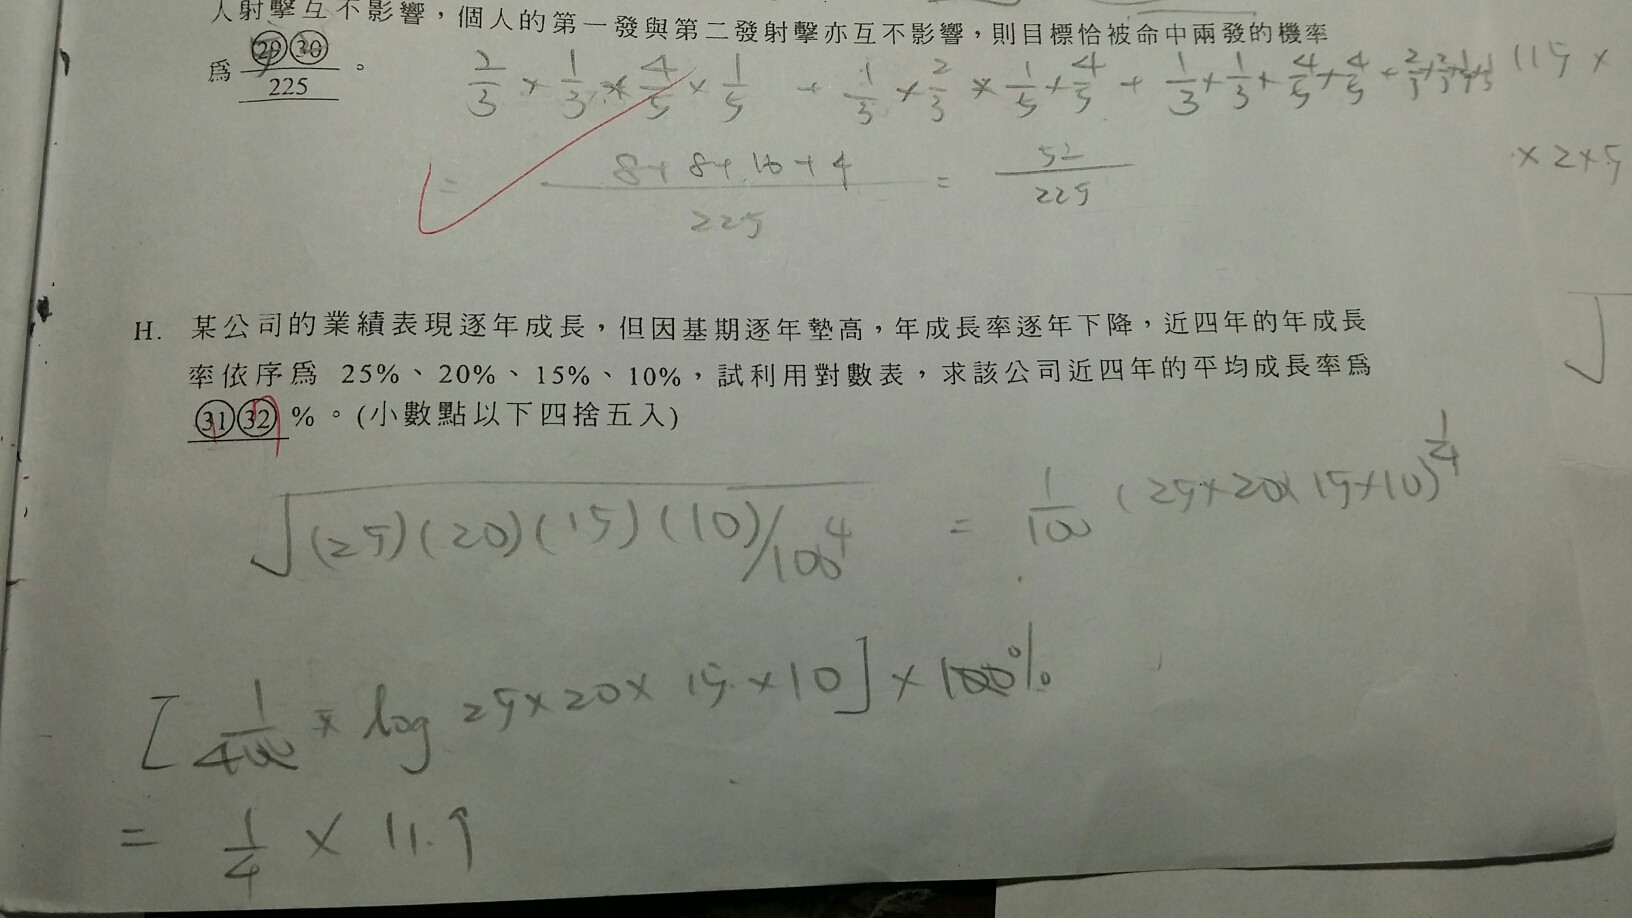 人射擊互不影響，個人的第一發與第二發射擊亦互不影響，則目標恰被命中兩發的機率
為 ㉙㉚/225 。
2/3 × 1/3 × 4/5 × 1/5 + 1/3 × 2/3 × 1/5 × 4/5 + 1/3 × 1/3 × 4/5 × 4/5 + 2/3 × 2/3 × 1/5 × 1/5
115 ×
= 8+8+16+4 / 225 = 52/225
×2×5
H. 某公司的業績表現逐年成長，但因基期逐年墊高，年成長率逐年下降，近四年的年成長
率依序為 25%、20%、15%、10%，試利用對數表，求該公司近四年的平均成長率為
㉛㉜ %。(小數點以下四捨五入)
√(25)(20)(15)(10)/100^4 = 1/100 (25×20×15×10)^1/4
[ 1/400 × log 25×20×15×10 ] × 100%
= 1/4 × 11.